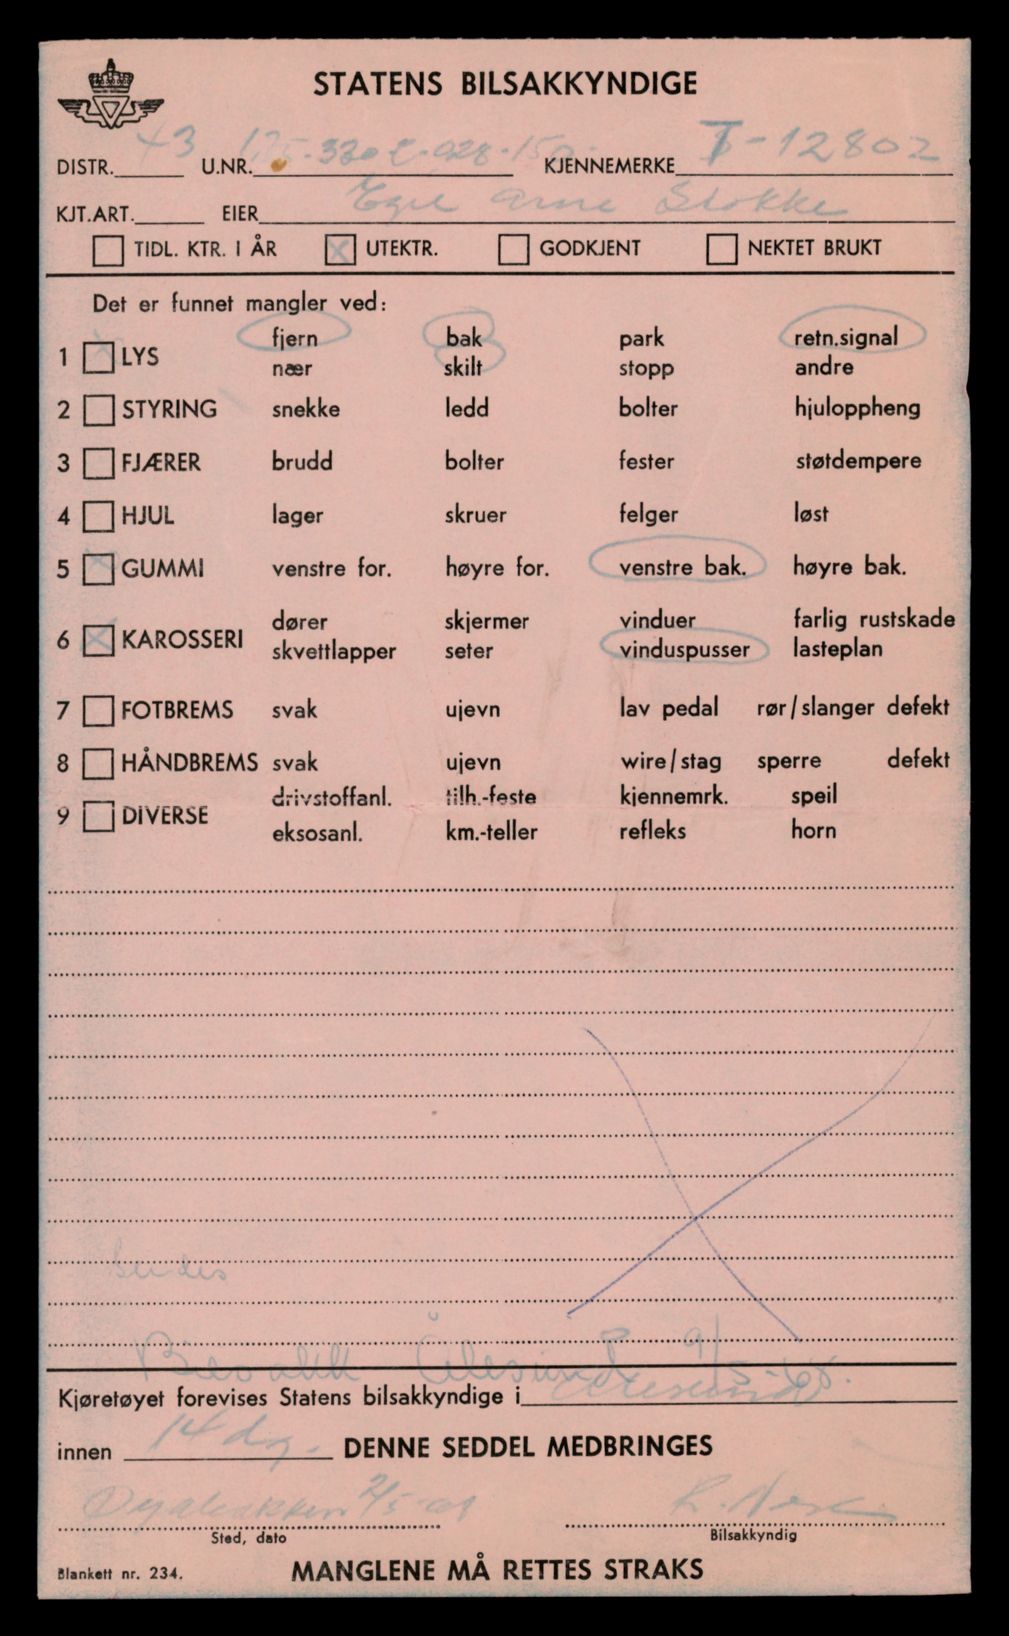 STATENS BILSAKKYNDIGE
DISTR. 43 U.NR. KJENNEMERKE T-12802
KJT.ART. EIER Egil Arne Stokke
TIDL. KTR. I ÅR X UTEKTR. GODKJENT NEKTET BRUKT
Det er funnet mangler ved:
fjern bak park retn.signal
1 LYS
nær skilt stopp andre
2 STYRING snekke ledd bolter hjuloppheng
3 FJÆRER brudd bolter fester støtdempere
4 HJUL lager skruer felger løst
5 GUMMI venstre for. høyre for. venstre bak. høyre bak.
dører skjermer vinduer farlig rustskade
6 X KAROSSERI
skvettlapper seter vinduspusser lasteplan
7 FOTBREMS svak ujevn lav pedal rør/slanger defekt
8 HÅNDBREMS svak ujevn wire/stag sperre defekt
drivstoffanl. tilh.-feste kjennemrk. speil
9 DIVERSE
eksosanl. km.-teller refleks horn
Sendes
Bilsakk Ålesund 9/5-68.
Kjøretøyet forevises Statens bilsakkyndige i Ålesund
innen 14 dg. DENNE SEDDEL MEDBRINGES
Sted, dato Bilsakkyndig
Blankett nr. 234. MANGLENE MÅ RETTES STRAKS